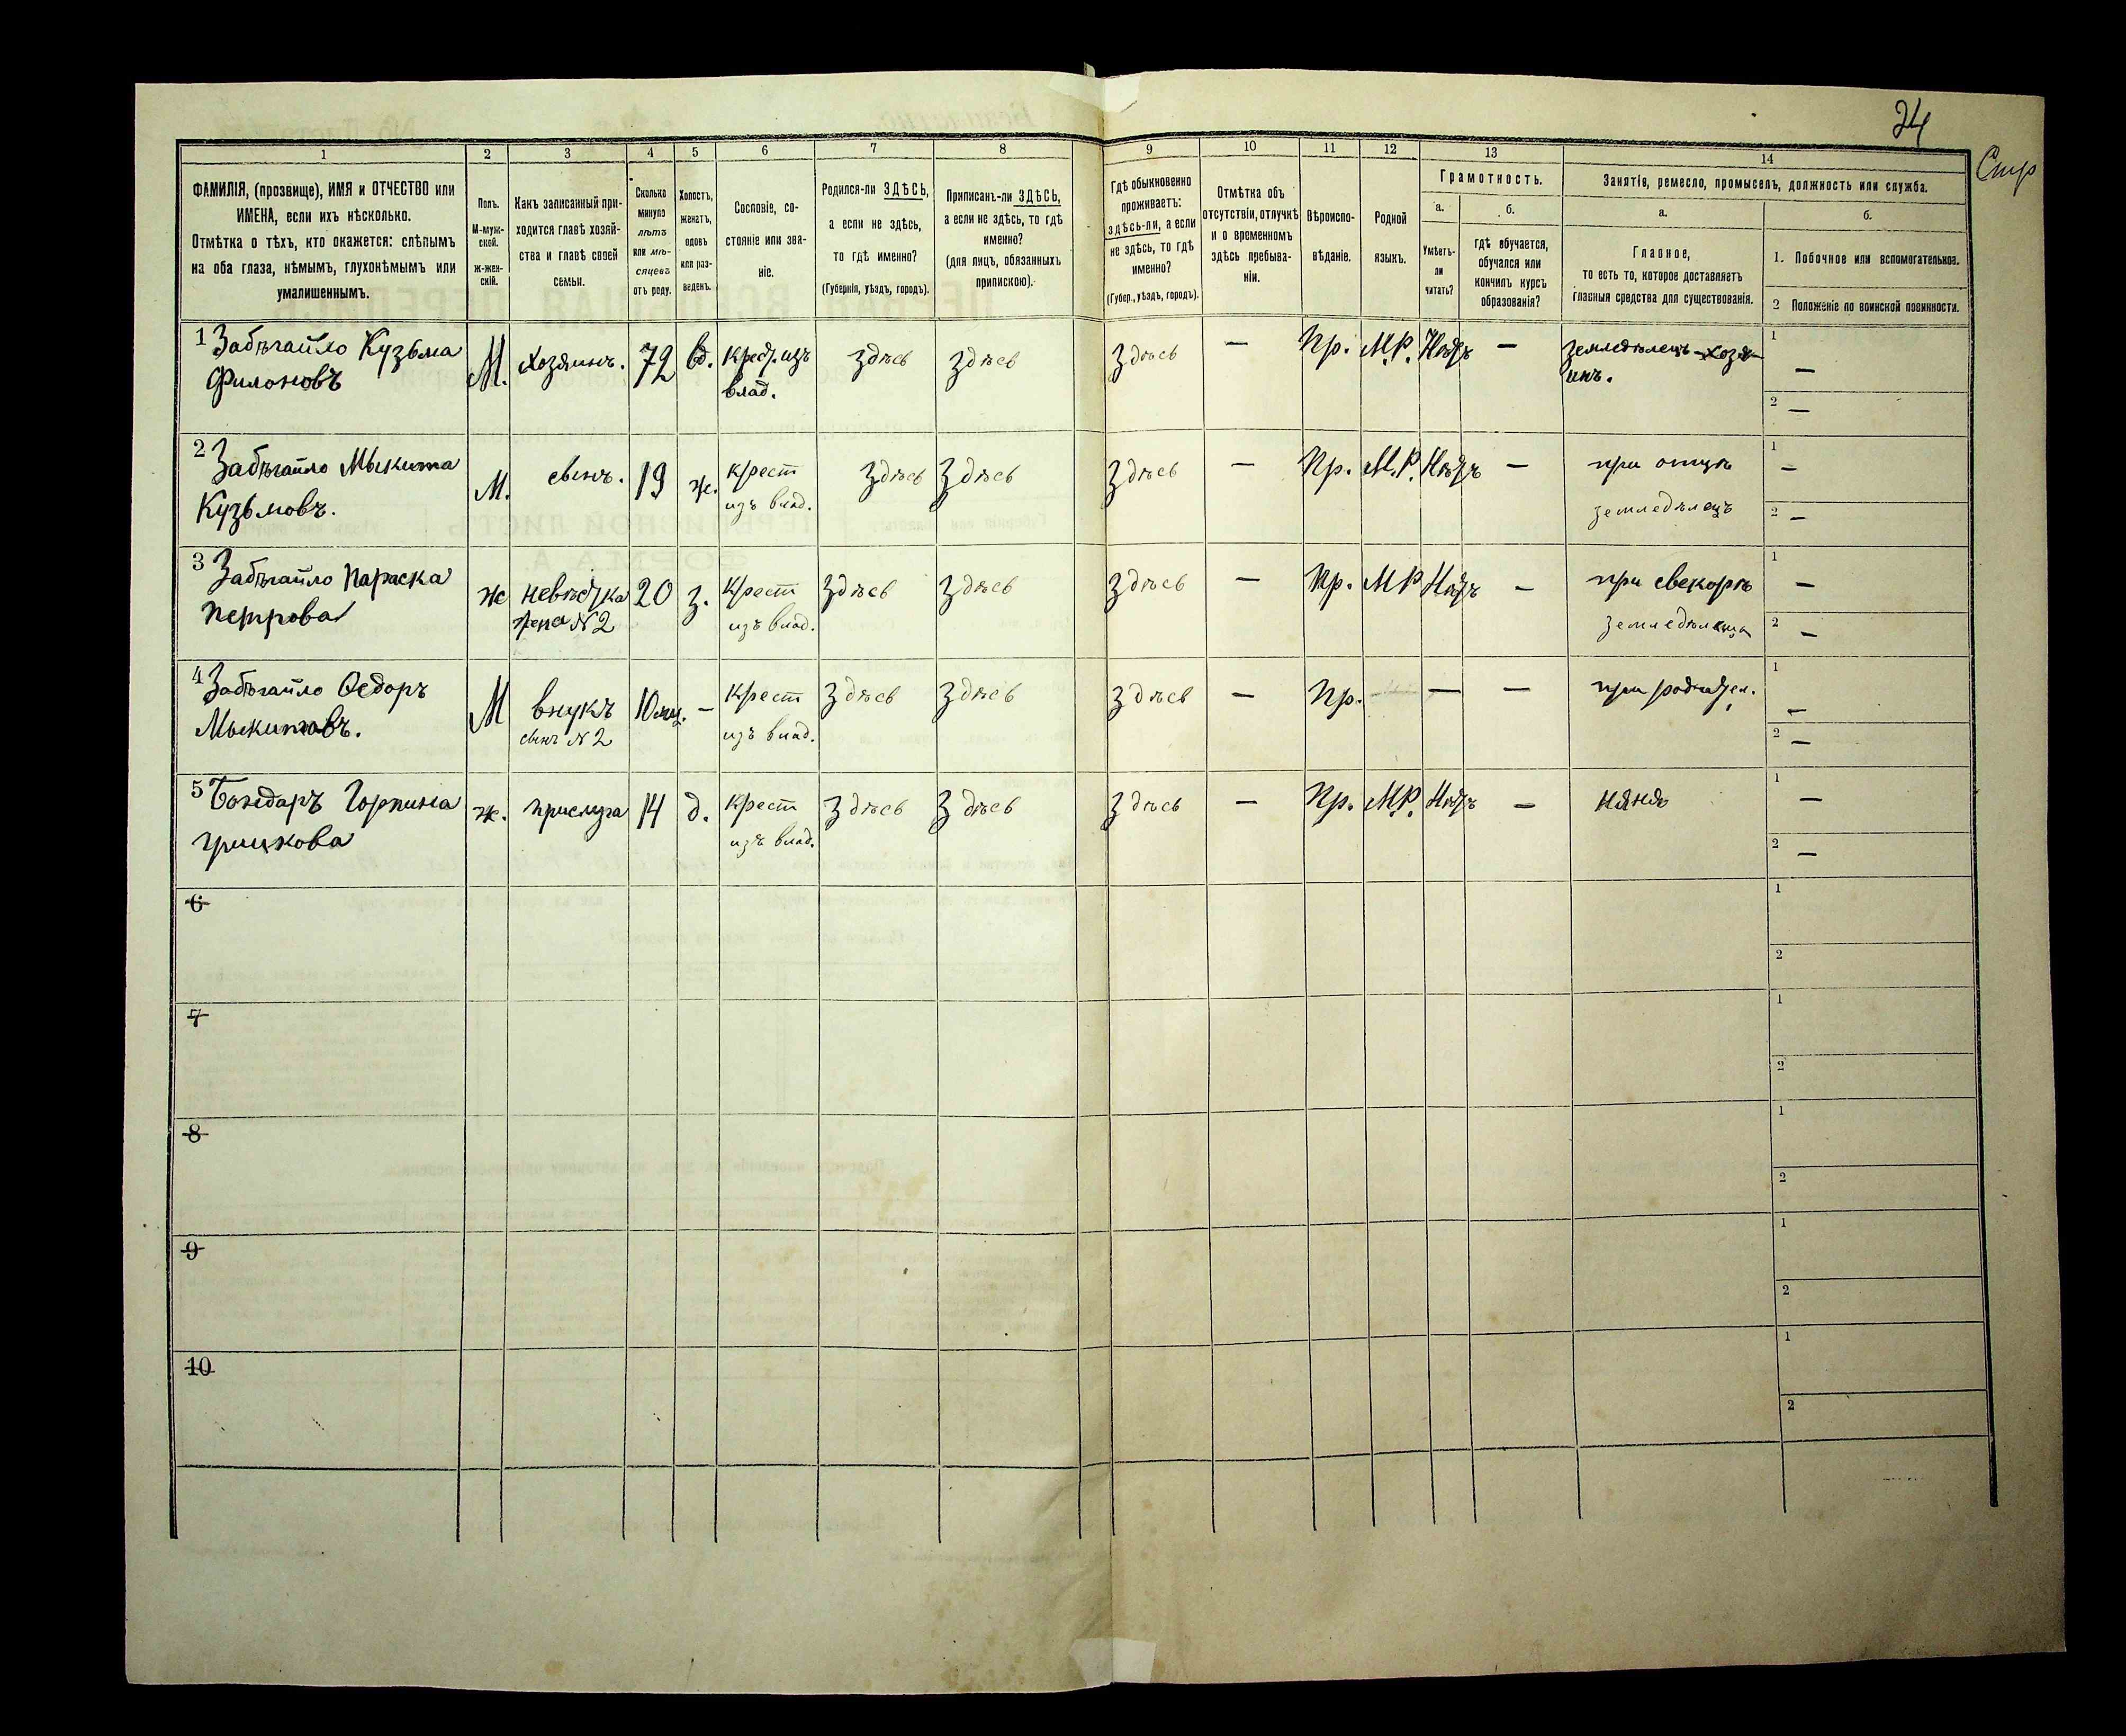 24
Стр
1 2 3 4 5 6 7 8 9 10 11 12 13 14
ФАМИЛІЯ, (прозвище), ИМЯ и ОТЧЕСТВО или
ИМЕНА, если ихъ нѣсколько.
Отмѣтка о тѣхъ, кто окажется: слѣпымъ
на оба глаза, нѣмымъ, глухонѣмымъ или
умалишеннымъ.
Полъ.
М-муж-
ской.
ж-жен-
скій.
Какъ записанный при-
ходится главѣ хозяй-
ства и главѣ своей
семьи.
Сколько
минуло
лѣтъ
или мѣ-
сяцевъ
отъ роду.
Холостъ,
женатъ,
вдовъ
или раз-
веденъ.
Сословіе, со-
стояніе или зва-
ніе.
Родился-ли ЗДѢСЬ,
а если не здѣсь,
то гдѣ именно?
(Губернія, уѣздъ, городъ).
Приписанъ-ли ЗДѢСЬ,
а если не здѣсь, то гдѣ
именно?
(для лицъ, обязанныхъ
припискою).
Гдѣ обыкновенно
проживаетъ:
здѣсь-ли, а если
не здѣсь, то гдѣ
именно?
(Губер., уѣздъ, городъ).
Отмѣтка объ
отсутствіи, отлучкѣ
и о временномъ
здѣсь пребыва-
ніи.
Вѣроиспо-
вѣданіе.
Родной
языкъ.
Грамотность.
а.
Умѣетъ-
ли
читать?
б.
гдѣ обучается,
обучался или
кончилъ курсъ
образованія?
Занятіе, ремесло, промыселъ, должность или служба.
а.
Главное,
то есть то, которое доставляетъ
главныя средства для существованія.
б.
1. Побочное или вспомогательное.
2 Положеніе по воинской повинности.
1 Забѣгайло Кузьма М. хозяинъ. 72 вд. Крест. изъ здѣсь здѣсь здѣсь — Пр. М.Р. Нѣтъ — земледѣлецъ-хозя- 1 —
Филоновъ влад. инъ. 2 —
2 Забѣгайло Мыкита М. сынъ. 19 ж. крест здѣсь здѣсь здѣсь — Пр. М.Р. Нѣтъ — при отцѣ 1 —
Кузьмовъ. изъ влад. земледѣлецъ 2 —
3 Забѣгайло Параска ж невѣстка 20 з. Крест здѣсь здѣсь здѣсь — Пр. М Р Нѣтъ — при свекорѣ 1 —
Петрова жена N 2 изъ влад. 2 —
4 Забѣгайло Ѳедоръ М внукъ 10 мц. — Крест здѣсь здѣсь здѣсь — Пр. — — при родител. 1 —
Мыкитовъ. сынъ N 2 изъ влад. 2 —
5 Бондарь Горпина ж. прислуга 14 д. Крест здѣсь здѣсь здѣсь — Пр. М.Р. Нѣтъ — няня 1 —
Грицкова изъ влад. 2 —
6 1
2
7 1
2
8 1
2
9 1
2
10 1
2